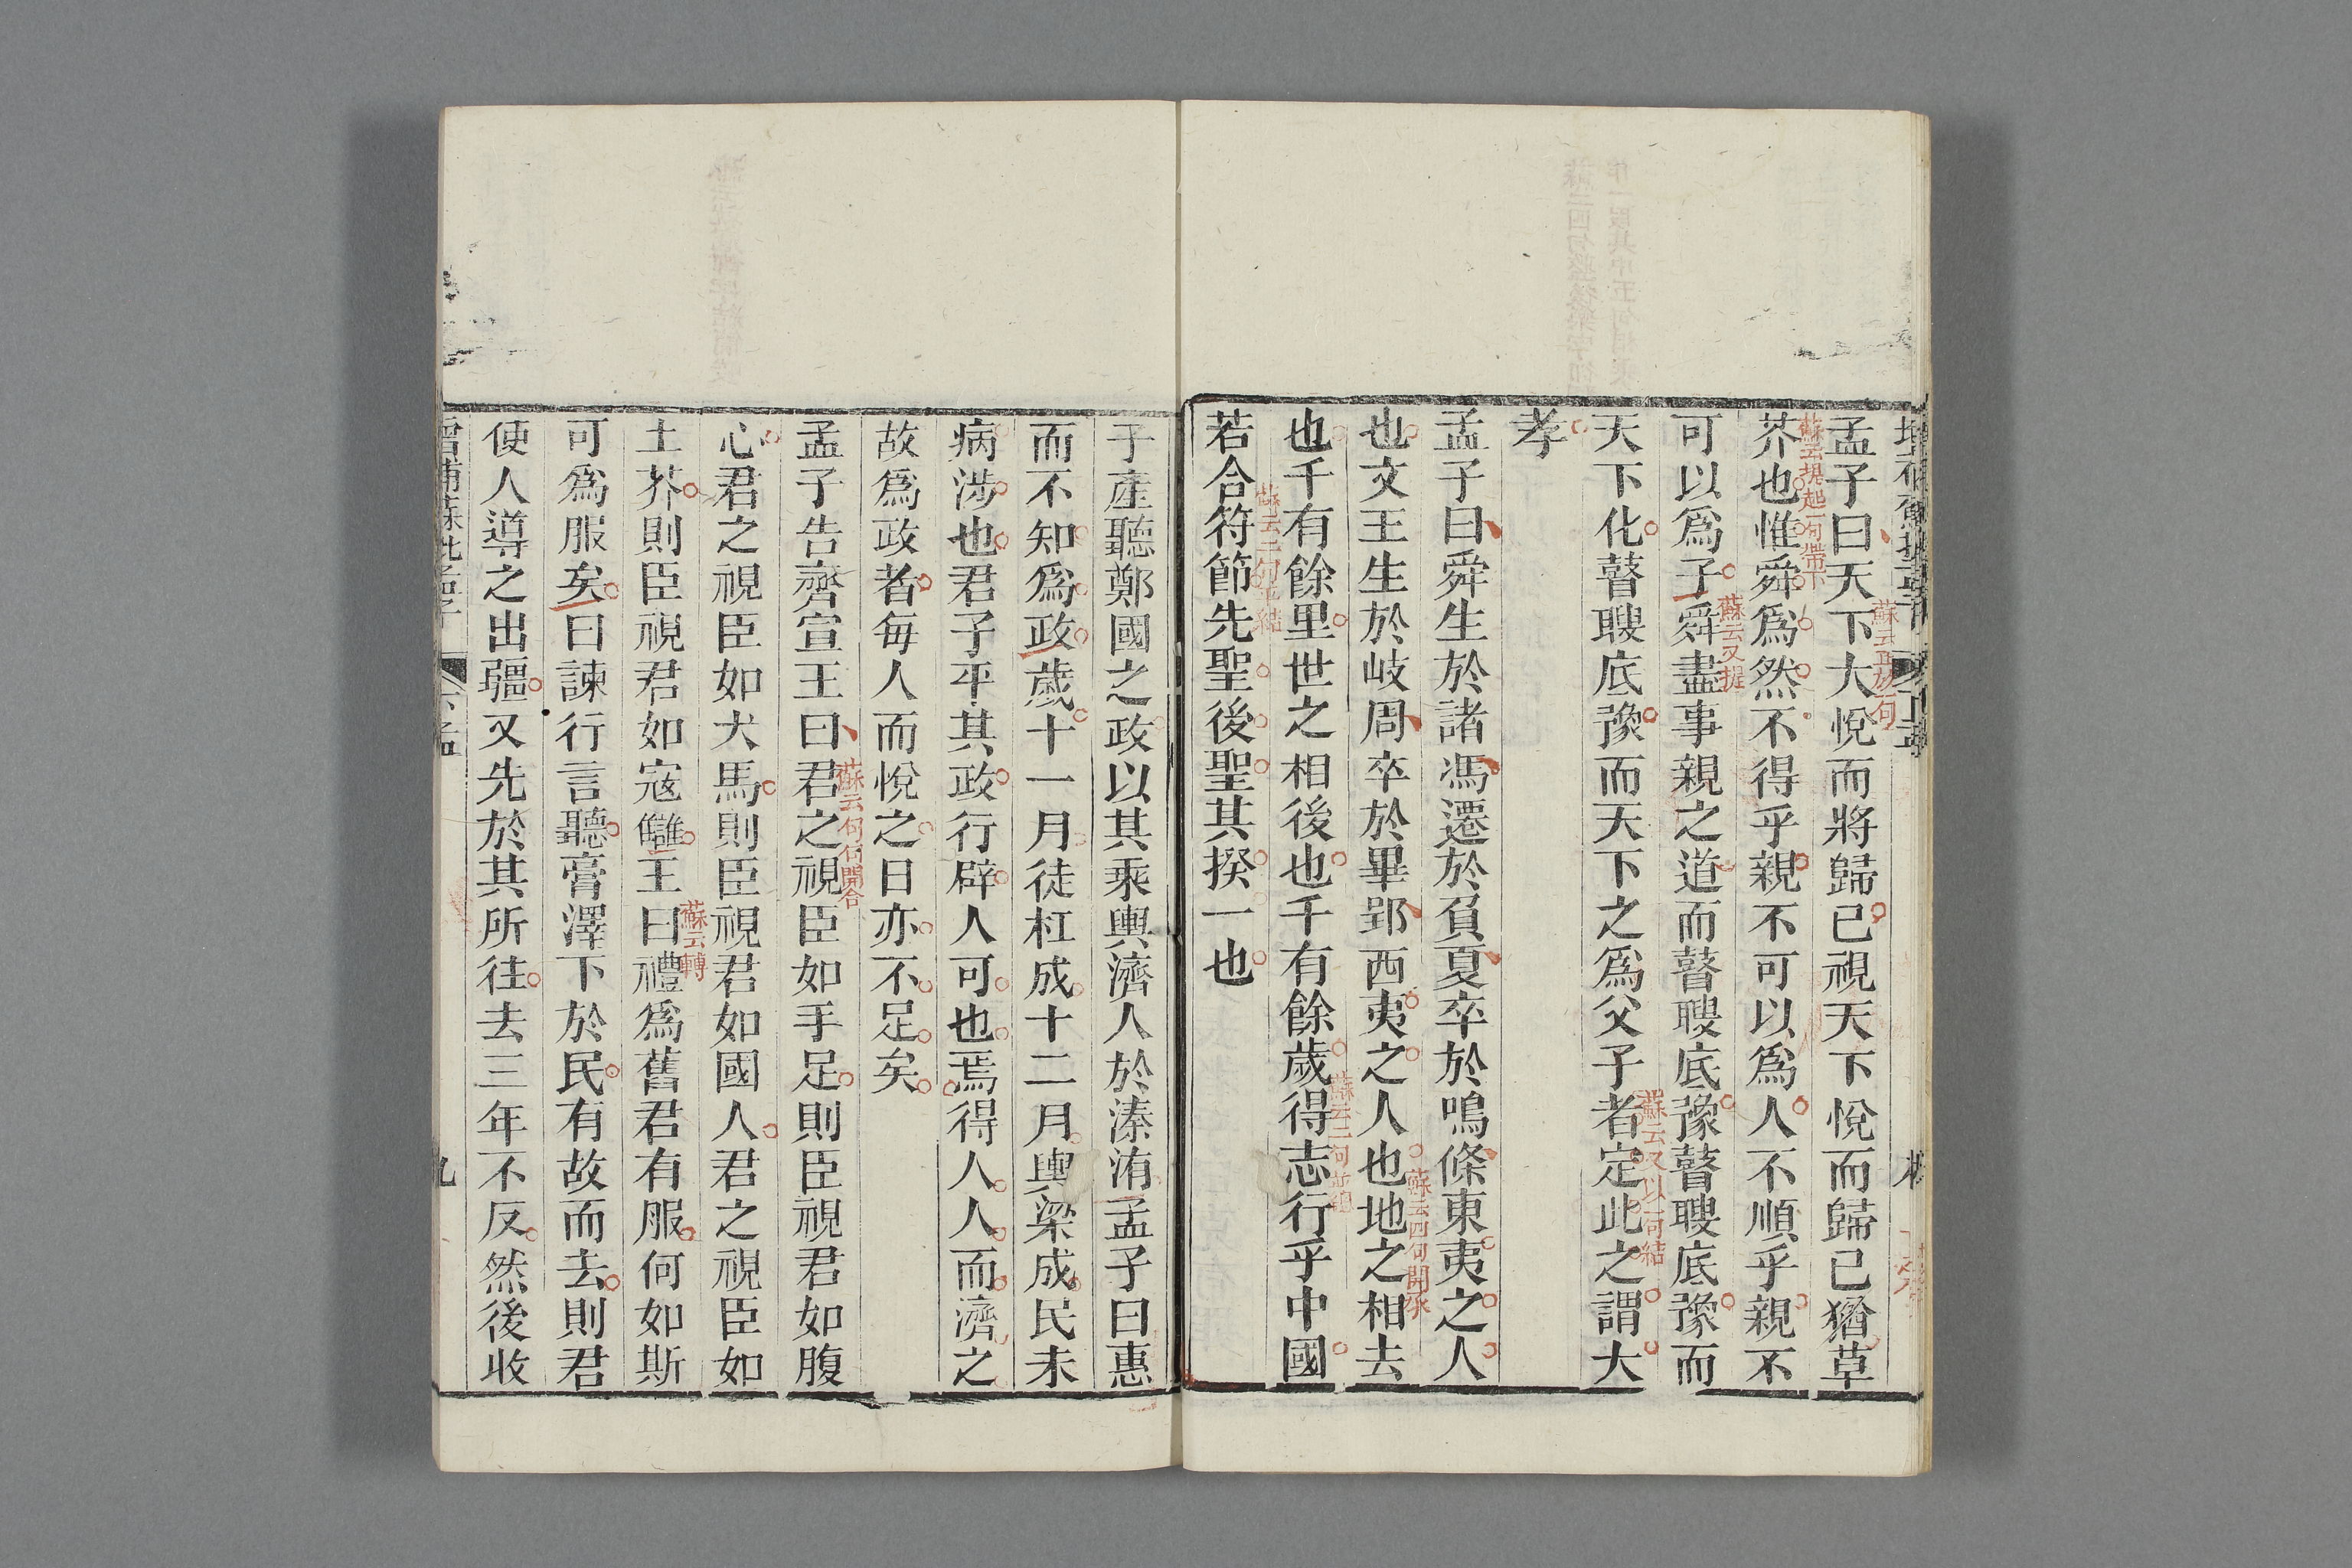 孟子曰天下大悅而將歸己視天下悅而歸己猶草
蘇云正放一句
芥也惟舜爲然不得乎親不可以爲人不順乎親不
蘇云提起一句帶下
可以爲子舜盡事親之道而瞽瞍底豫瞽瞍底豫而
蘇云又提
天下化瞽瞍底豫而天下之爲父子者定此之謂大
蘇云又以一句結
孝
孟子曰舜生於諸馮遷於負夏卒於鳴條東夷之人
也文王生於岐周卒於畢郢西夷之人也地之相去
蘇云四句開承
也千有餘里世之相後也千有餘歲得志行乎中國
蘇云二句並總
若合符節先聖後聖其揆一也
蘇云二句平結
子產聽鄭國之政以其乘輿濟人於溱洧孟子曰惠
而不知爲政歲十一月徒杠成十二月輿梁成民未
病涉也君子平其政行辟人可也焉得人人而濟之
故爲政者每人而悅之日亦不足矣
孟子告齊宣王曰君之視臣如手足則臣視君如腹
蘇云句句開合
心君之視臣如犬馬則臣視君如國人君之視臣如
土芥則臣視君如寇讎王曰禮爲舊君有服何如斯
蘇云轉
可爲服矣曰諫行言聽膏澤下於民有故而去則君
使人導之出疆又先於其所往去三年不反然後收
九